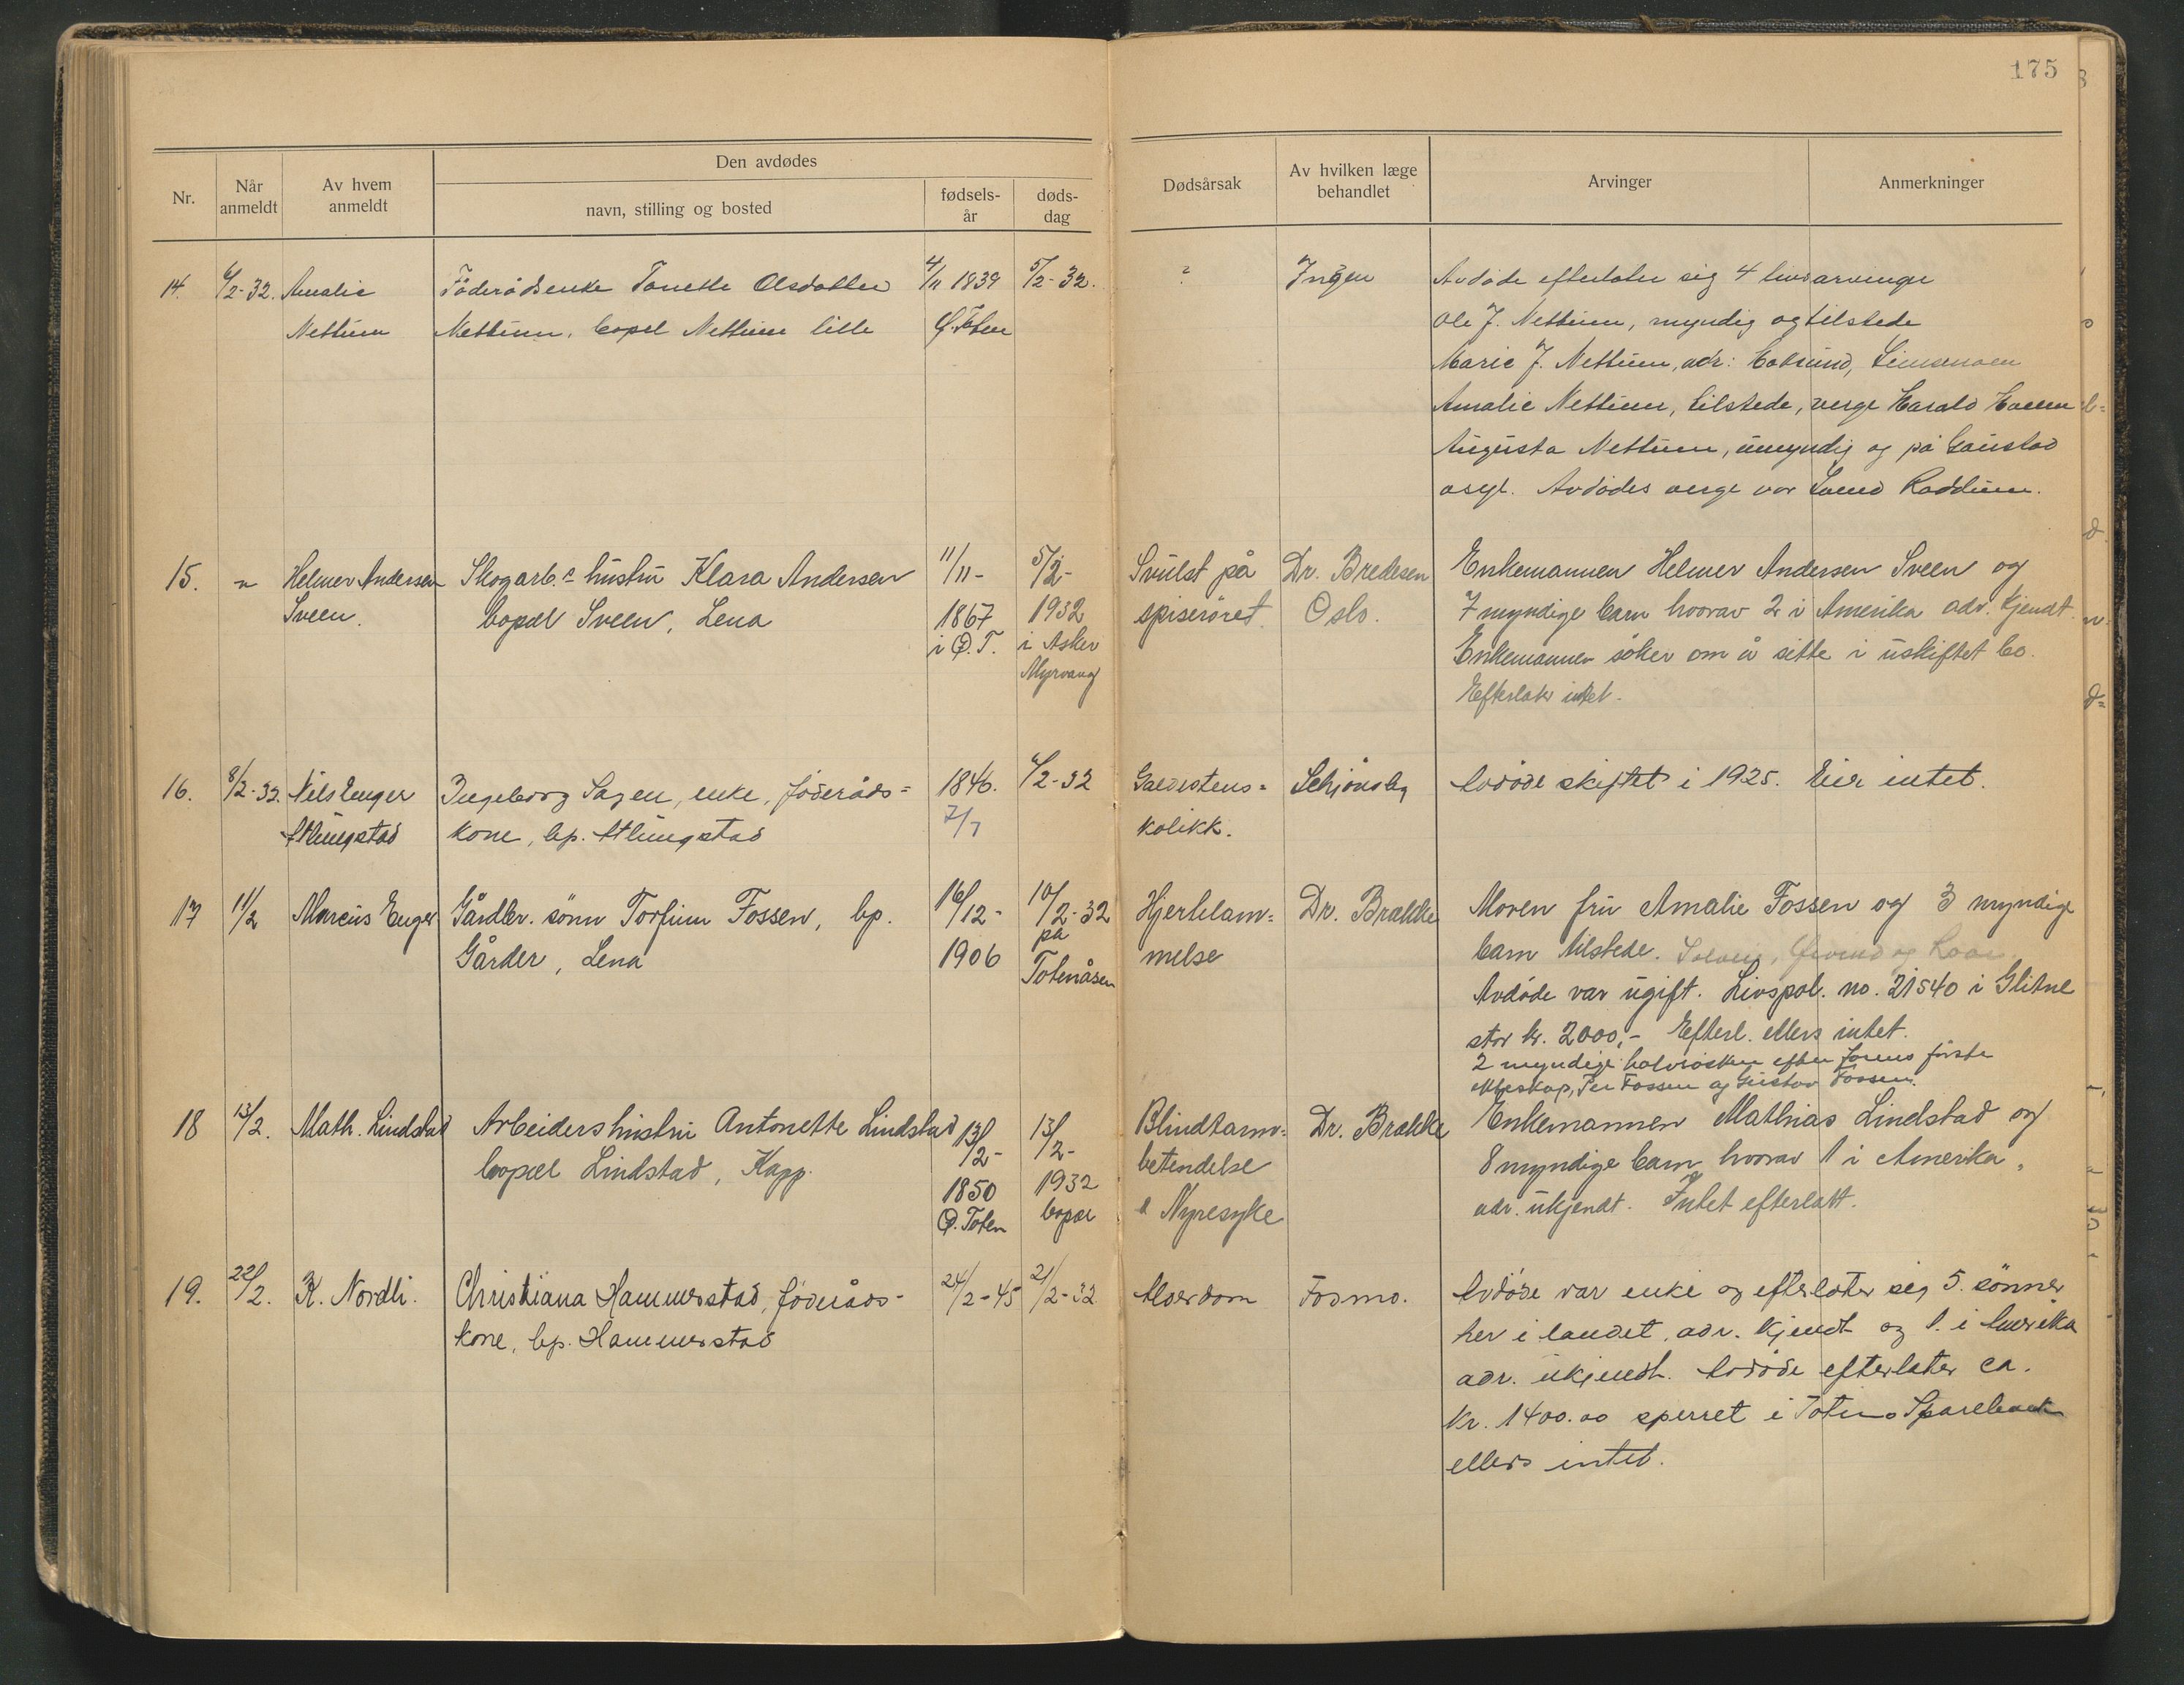 175
Den avdødes
Nr.
Når anmeldt
Av hvem anmeldt
navn, stilling og bosted
fødsels-år
døds-dag
Dødsårsak
Av hvilken læge behandlet
Arvinger
Anmerkninger
14. 6/2-32. Amalie Föderådsenke Tonette Olsdatter 4/11 1839 5/2-32. ? Ingen Avdöde efterlater sig 4 livsarvinger
Nettum Nettum, bopel Nettum lille Ø. Toten Ole J. Nettum, myndig og tilstede
Marie J. Nettum, adr: Hoksund,
Amalie Nettum, tilstede, verge Harald
Augusta Nettum, umyndig og på Gaustad
asyl. Avdödes verge var Svend Raddum.
15. " Helmer Andersen Skogarb.s hustru Klara Andersen 11/11- 5/2- Svulst på Dr. Bredesen Enkemannen Helmer Andersen Sveen og
Sveen. bopæl Sveen, Lena 1867 1932 spiserøret. Oslo. 7 myndige barn hvorav 2 i Amerika adr. kjendt.
i Ø.T. i Asker Enkemannen søker om å sitte i uskiftet bo.
Myrvang Efterlater intet.
16. 8/2-32. Nils Enger Ingeborg Sagen, enke, föderåds= 1846. 6/2-32 Galdestens= Schjønsby Avdöde skiftet i 1925. Eier intet.
Alungstad kone, bp. Alungstad 7/7 kolikk.
17 11/2 Marcus Enger Gårdbr. sønn Torfinn Fossen, bp. 16/12- 10/2-32 Hjertelam= Dr. Brække Moren fru Amalie Fossen og 3 myndige
Gårder, Lena 1906 på Totenåsen melse barn tilstede. Solveig, Øivind og Roar.
Avdöde var ugift. Livspol. no. 21540 i Glitne
stor kr. 2000,- Efterl. ellers intet.
2 myndige halvsøsken efter farens første
ekteskap, Per Fossen og Gustav Fossen.
18 13/2. Math. Lindstad Arbeidershustru Antonette Lindstad 13/2- 13/2- Blindtarm= Dr. Brække Enkemannen Mathias Lindstad og
bopæl Lindstad, Kapp. 1850 1932 betendelse 8 myndige barn hvorav 1 i Amerika,
Ø. Toten bopæl & Nyresyke adr. ukjendt. Intet efterlatt.
19. 22/2. K. Nordli. Christiana Hammerstad, föderåds- 24/2-45 21/2-32 Alderdom Fosmo. Avdöde var enke og efterlater sig 5. sønner
kone, bp. Hammerstad her i landet, adr. kjendt og 1. i Amerika
adr. ukjendt. Avdöde efterlater ca.
kr. 1400.00 sperret i Totens Sparebank
ellers intet.